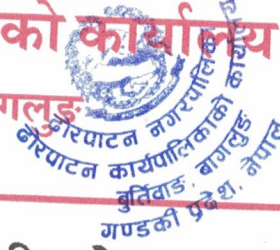 को कार्यालय
गलुङ
ढोरपाटन नगरपालिका
ढोरपाटन कार्यपालिकाको कार्यालय
बुर्तिवाङ, बागलुङ
गण्डकी प्रदेश, नेपाल